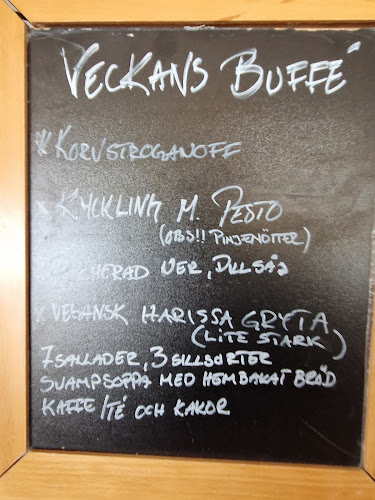 VECKANS BUFFÉ
* KORVSTROGANOFF
* KYCKLING M. PESTO
(OBS!! PINJENÖTTER)
DILLSÅS
* VEGANSK HARISSA GRYTA
(LITE STARK)
7 SALLADER, 3 SILLSORTER
SVAMPSOPPA MED HEMBAKAT BRÖD
KAFFE/TÉ OCH KAKOR